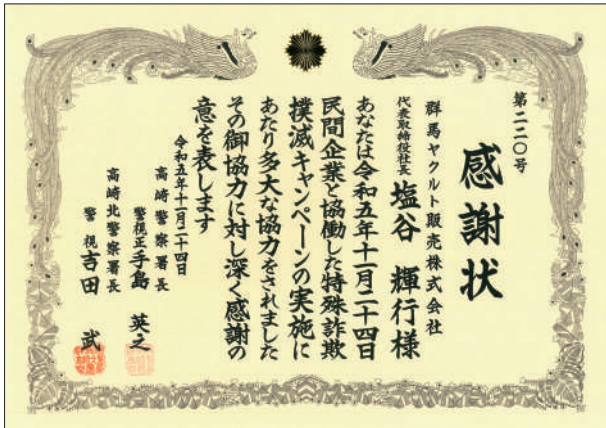 第二二〇号
感謝状
群馬ヤクルト販売株式会社
代表取締役社長 塩谷 輝行様
あなたは令和五年十一月二十四日
民間企業と協働した特殊詐欺
撲滅キャンペーンの実施に
あたり多大な協力をされました
その御協力に対し深く感謝の
意を表します
令和五年十一月二十四日
高崎警察署長
警視正 手島 英之
高崎北警察署長
警視 吉田 武